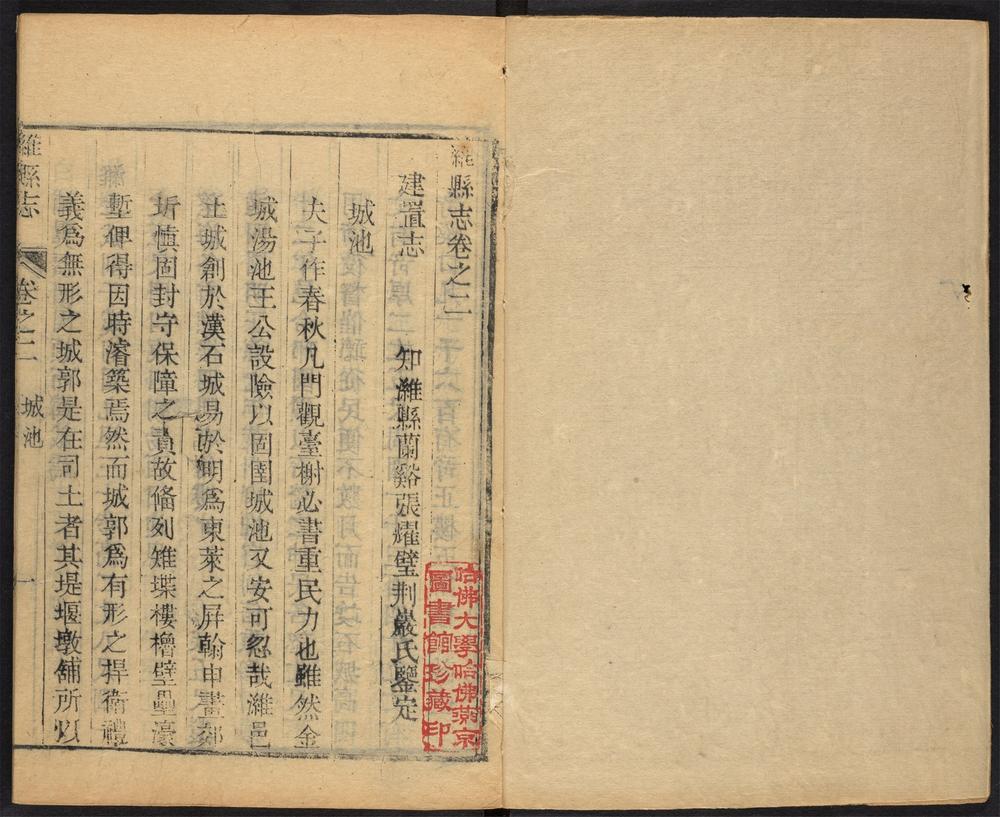 濰縣志卷之二
建置志
知濰縣蘭谿張耀璧荆巖氏鑒定
城池
夫子作春秋凡門觀臺榭必書重民力也雖然金
城湯池王公設險以固圉城池又安可忽哉濰邑
土城創於漢石城易於明爲東萊之屏翰申畫郊
圻慎固封守保障之責故俻列雉堞樓櫓壁壘濠
塹俾得因時濬築焉然而城郭爲有形之捍衛禮
義爲無形之城郭是在司土者其堤堰墩舖所以
濰縣志
卷之二
城池
一
哈佛大學哈佛燕京
圖書館珍藏印